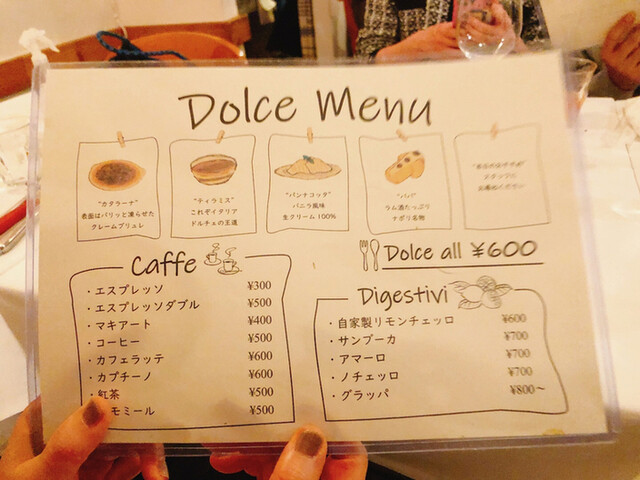 Dolce Menu
"カタラーナ"
表面はパリッと凍らせた
クレームブリュレ
"ティラミス"
これぞイタリア
ドルチェの王道
"パンナコッタ"
バニラ風味
生クリーム100%
"ババ"
ラム酒たっぷり
ナポリ名物
"本日のおすすめ"
スタッフに
お尋ねください
Dolce all ¥600
Caffe
・エスプレッソ ¥300
・エスプレッソダブル ¥500
・マキアート ¥400
・コーヒー ¥500
・カフェラッテ ¥600
・カプチーノ ¥600
・紅茶 ¥500
モミール ¥500
Digestivi
・自家製リモンチェッロ ¥600
・サンブーカ ¥700
・アマーロ ¥700
・ノチェッロ ¥700
・グラッパ ¥800〜